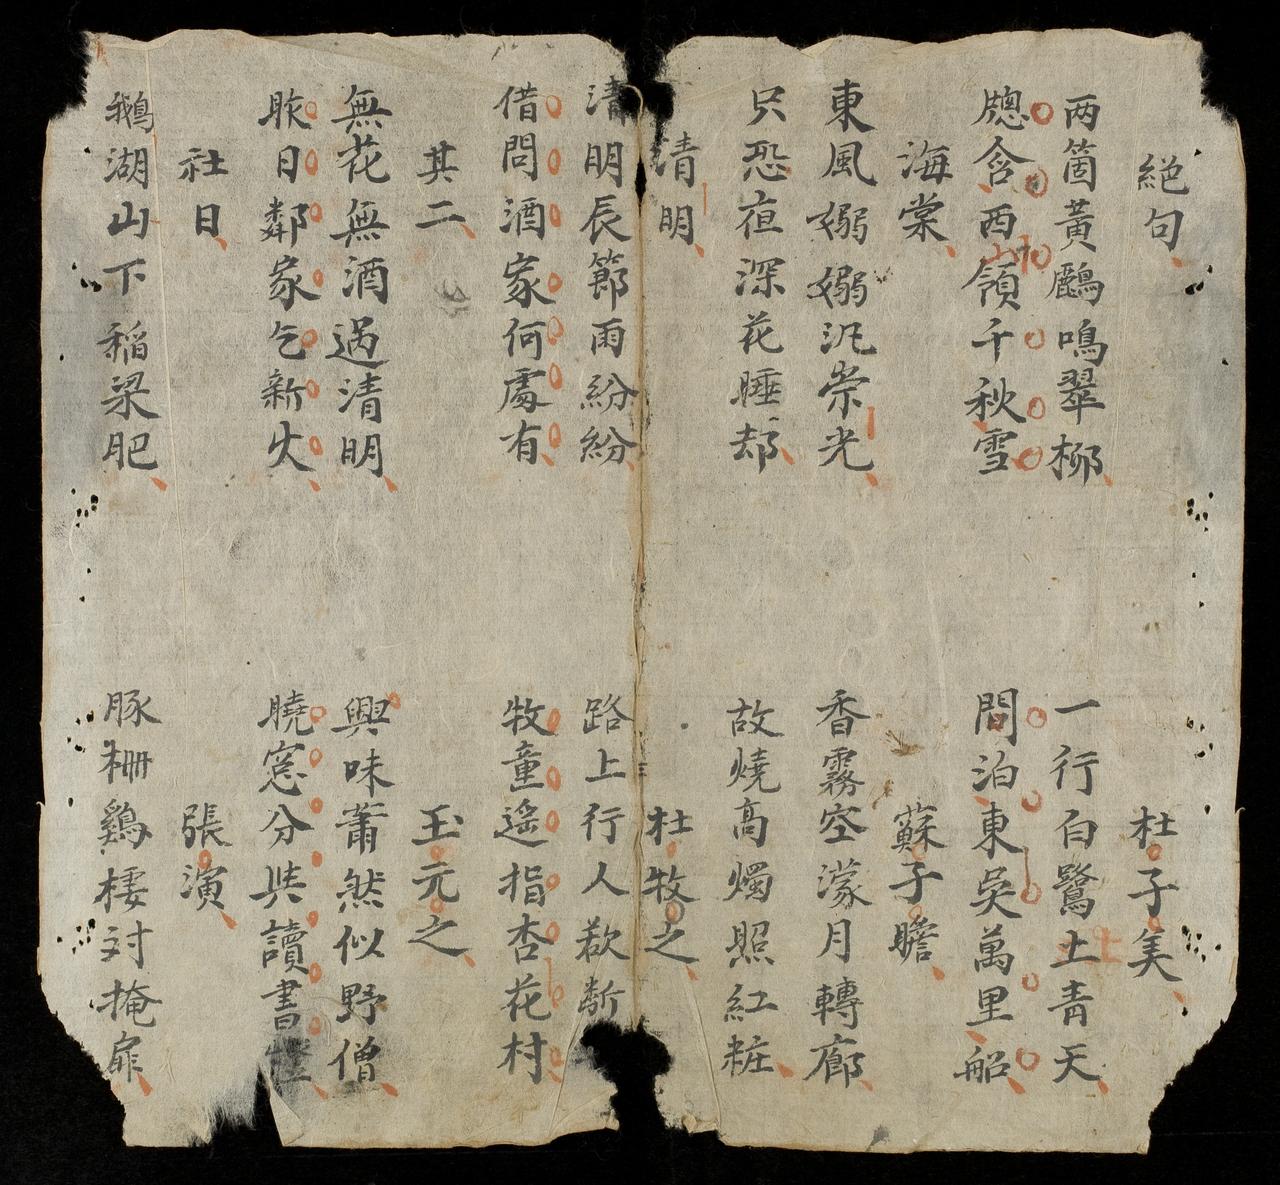 絕句 杜子美
两箇黃鸝鳴翠柳 一行白鷺土青天
上
牕含西領千秋雪 間泊東吳萬里船
海棠 蘇子瞻
東風嫋嫋汎崇光 香霧空濛月轉廊
只恐夜深花睡却 故燒高燭照紅粧
清明 杜牧之
清明辰節雨紛紛 路上行人欲斷
借問酒家何處有 牧童遙指杏花村
其二 玉元之
無花無酒過清明 興味蕭然似野僧
昨日鄰家乞新火 曉窓分與讀書
社日 張濱
鵝湖山下稻梁肥 豚柵鷄棲対掩扉